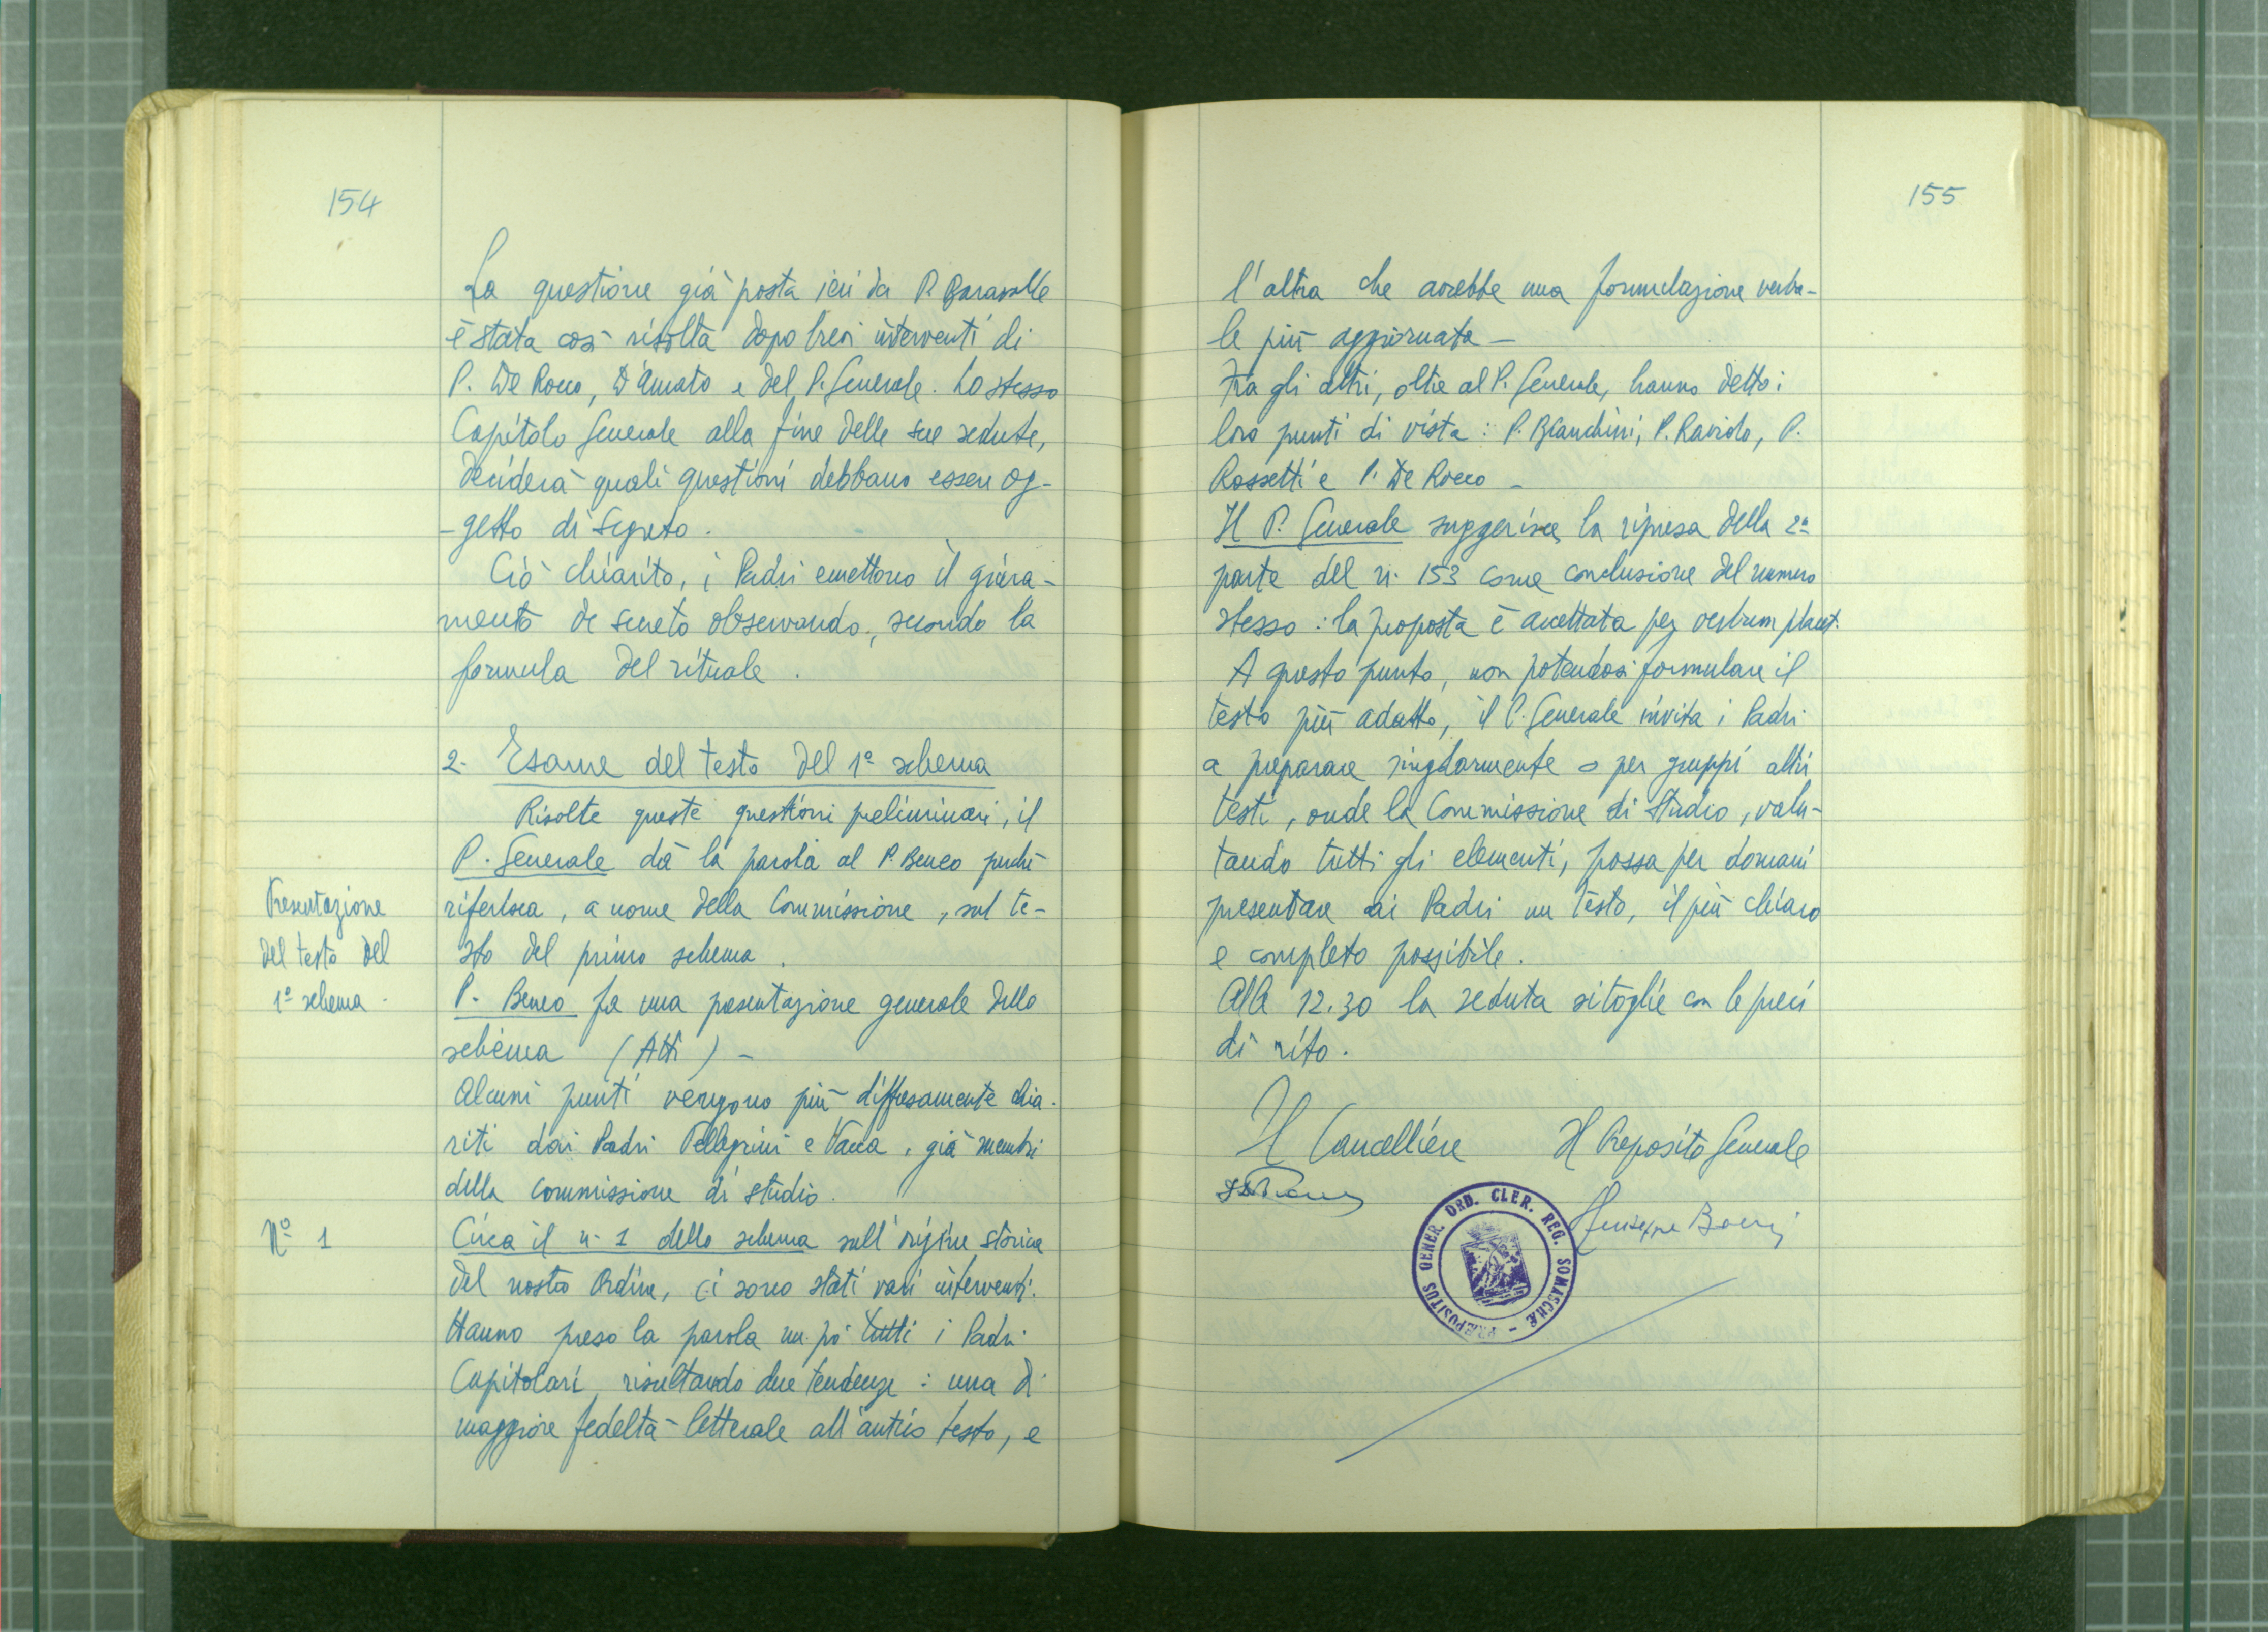 154
La questione già posta ieri da P. Baravalle
è stata così risolta dopo brevi interventi di
P. De Rocco, D'Amato e del P. Generale. Lo stesso
Capitolo Generale alla fine delle sue sedute,
deciderà quali questioni debbano essere og-
-getto di segreto.
Ciò chiarito, i Padri emettono il giura-
mento de secreto observando, secondo la
formula del rituale.
2- Esame del testo del 1º schema
Risolte queste questioni preliminari, il
P. Generale dà la parola al P. Beneo perchè
riferisca, a nome della Commissione, sul te-
sto del primo schema.
Presentazione
del testo del
1º schema -
P. Beneo fa una presentazione generale dello
schema (Atti) -
Alcuni punti vengono più diffusamente chia-
riti dai Padri Pellegrini e Vacca, già membri
della commissione di studio.
Nº 1
Circa il n. 1 dello schema sull'origine storica
del nostro Ordine, ci sono stati vari interventi.
Hanno preso la parola un pò tutti i Padri
Capitolari, risultando due tendenze: una di
maggiore fedeltà letterale all'antico testo, e
155
l'altra che avrebbe una formulazione verba-
le più aggiornata -
Fra gli altri, oltre al P. Generale, hanno detto i
loro punti di vista: P. Bianchini, P. Raviolo, P.
Rossetti e P. De Rocco -
Il P. Generale suggerisce la ripresa della 2ª
parte del n. 153 come conclusione del numero
stesso: la proposta è accettata per verbum placet.
A questo punto, non potendosi formulare il
testo più adatto, il P. Generale invita i Padri
a preparare singolarmente o per gruppi altri
testi, onde la Commissione di Studio, valu-
tando tutti gli elementi, possa per domani
presentare ai Padri un testo, il più chiaro
e completo possibile.
Alle 12.30 la seduta si toglie con le preci
di rito.
Il Cancelliere Il Preposito Generale
Giuseppe
PRÆPOSITUS GENER. ORD. CLER. REG. SOMASCHÆ -